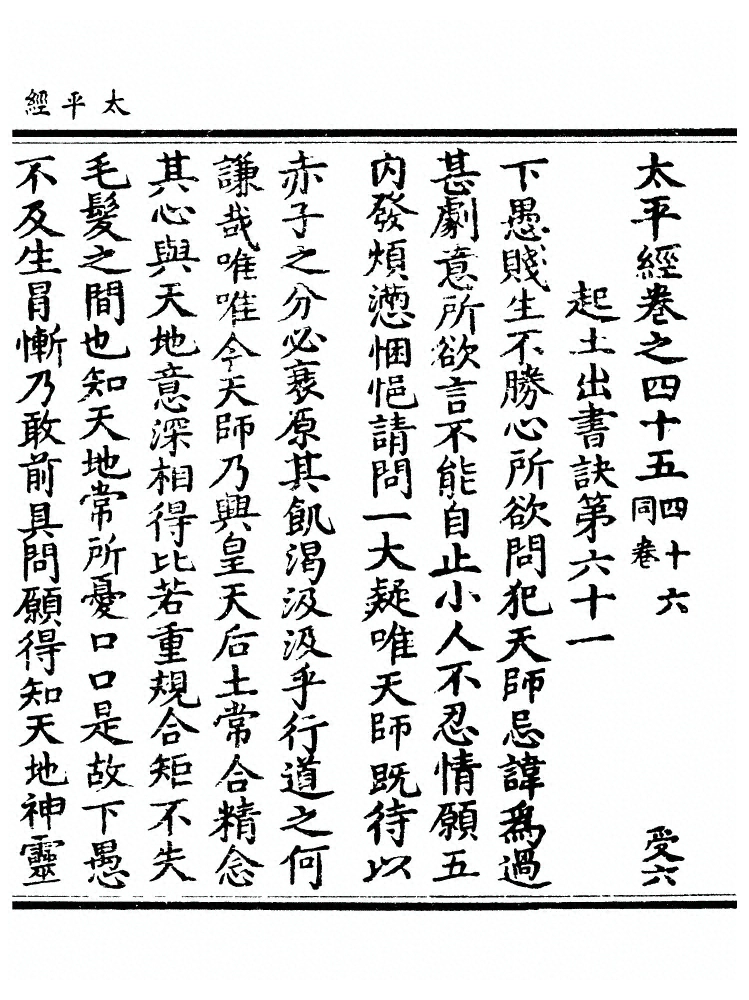 太平經
太平經卷之四十五四十六同卷 受六
起土出書訣第六十一
下愚賤生不勝心所欲問犯天師忌諱爲過
甚劇意所欲言不能自止小人不忍情願五
内發煩懣悃悒請問一大疑唯天師既待以
赤子之分必衰原其飢渴汲汲乎行道之何
謙哉唯唯今天師乃興皇天后土常合精念
其心與天地意深相得比若重規合矩不失
毛髮之間也知天地常所憂口口是故下愚
不及生冒慚乃敢前具問願得知天地神靈